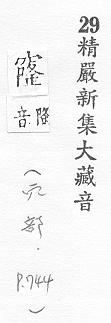 29精嚴新集大藏音
窿
隆音
(穴部．P.744)